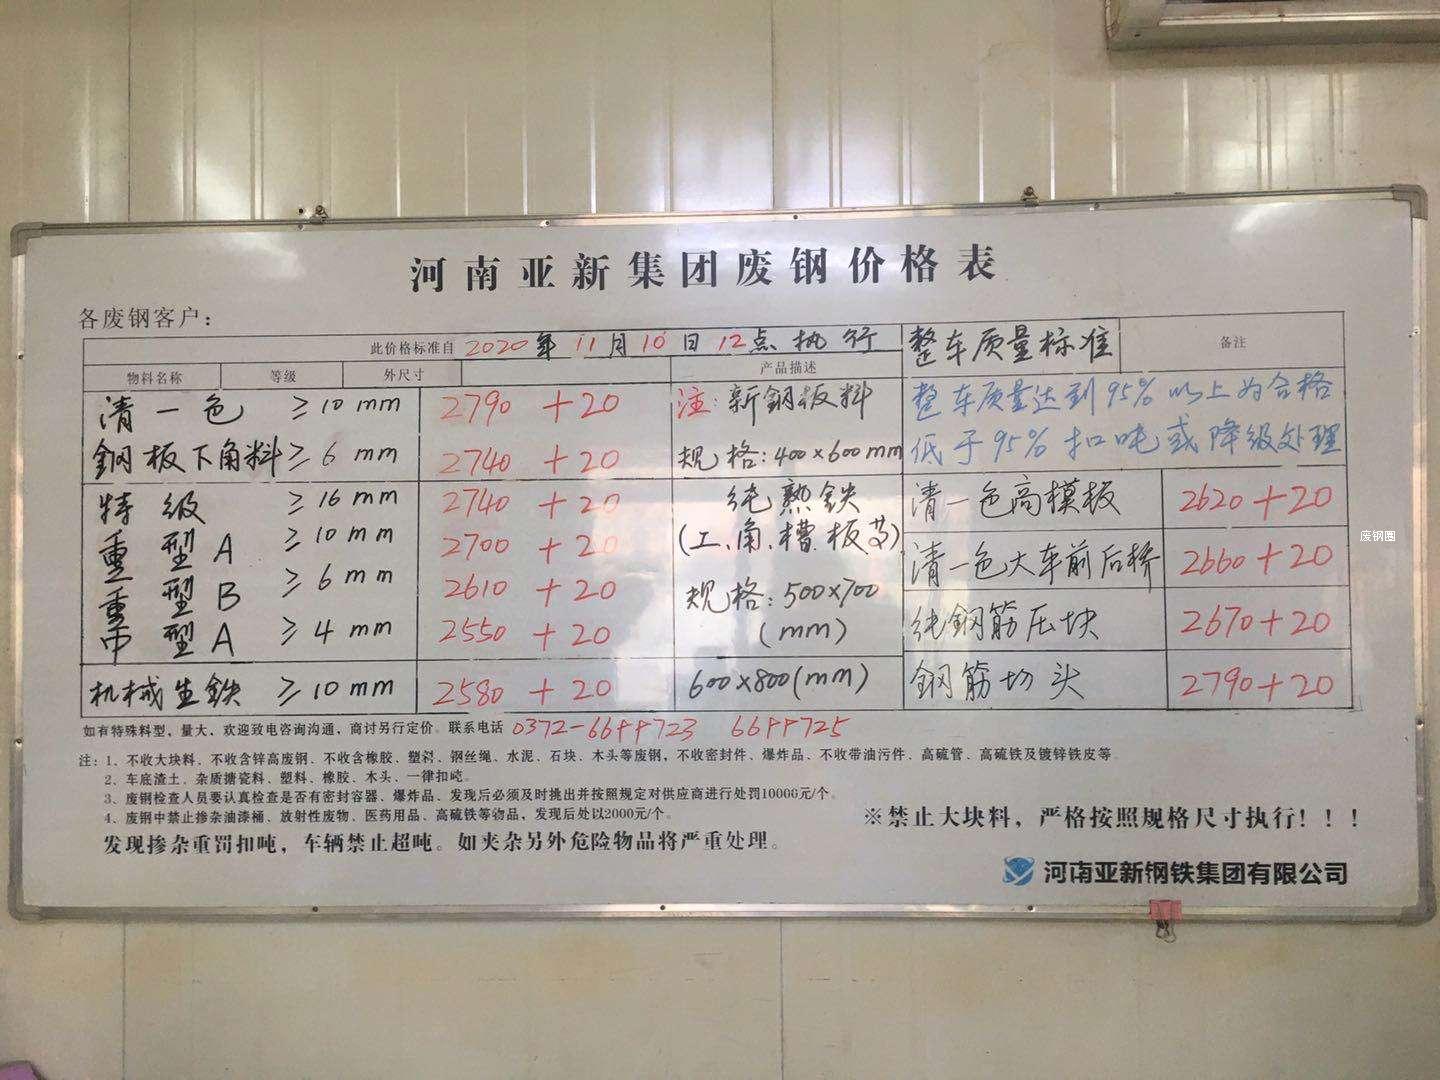 河南亚新集团废钢价格表
各废钢客户：
此价格标准自 2020年 11月 10日 12点 执行 整车质量标准 备注
物料名称 等级 外尺寸 产品描述
清一色 ≥10mm 2790 +20 注: 新鋼板料 整车质量达到95%以上为合格
鋼板下角料 ≥6mm 2740 +20 规格:400×600mm 低于95%扣吨或降级处理
特级 ≥16mm 2740 +20 纯熟鉄 清一色高模板 2620+20
重型A ≥10mm 2700 +20 (工、角、槽、板等) 清一色大车前后桥 2660+20
重型B ≥6mm 2610 +20 规格:500×700 纯鋼筋压块 2670+20
中型A ≥4mm 2550 +20 (mm)
机械生鉄 ≥10mm 2580 +20 600×800(mm) 鋼筋切头 2790+20
如有特殊料型，量大、欢迎致电咨询沟通，商讨另行定价。联系电话 0372-6644723 6644725
注：1、不收大块料、不收含锌高废钢、不收含橡胶、塑料、钢丝绳、水泥、石块、木头等废钢，不收密封件、爆炸品、不收带油污件、高硫管、高硫铁及镀锌铁皮等
2、车底渣土、杂质搪瓷料、塑料、橡胶、木头、一律扣吨。
3、废钢检查人员要认真检查是否有密封容器、爆炸品、发现后必须及时挑出并按照规定对供应商进行处罚10000元/个。
4、废钢中禁止掺杂油漆桶、放射性废物、医药用品、高硫铁等物品，发现后处以2000元/个。
※禁止大块料，严格按照规格尺寸执行！！！
发现掺杂重罚扣吨，车辆禁止超吨。如夹杂另外危险物品将严重处理。
河南亚新钢铁集团有限公司
废钢圈